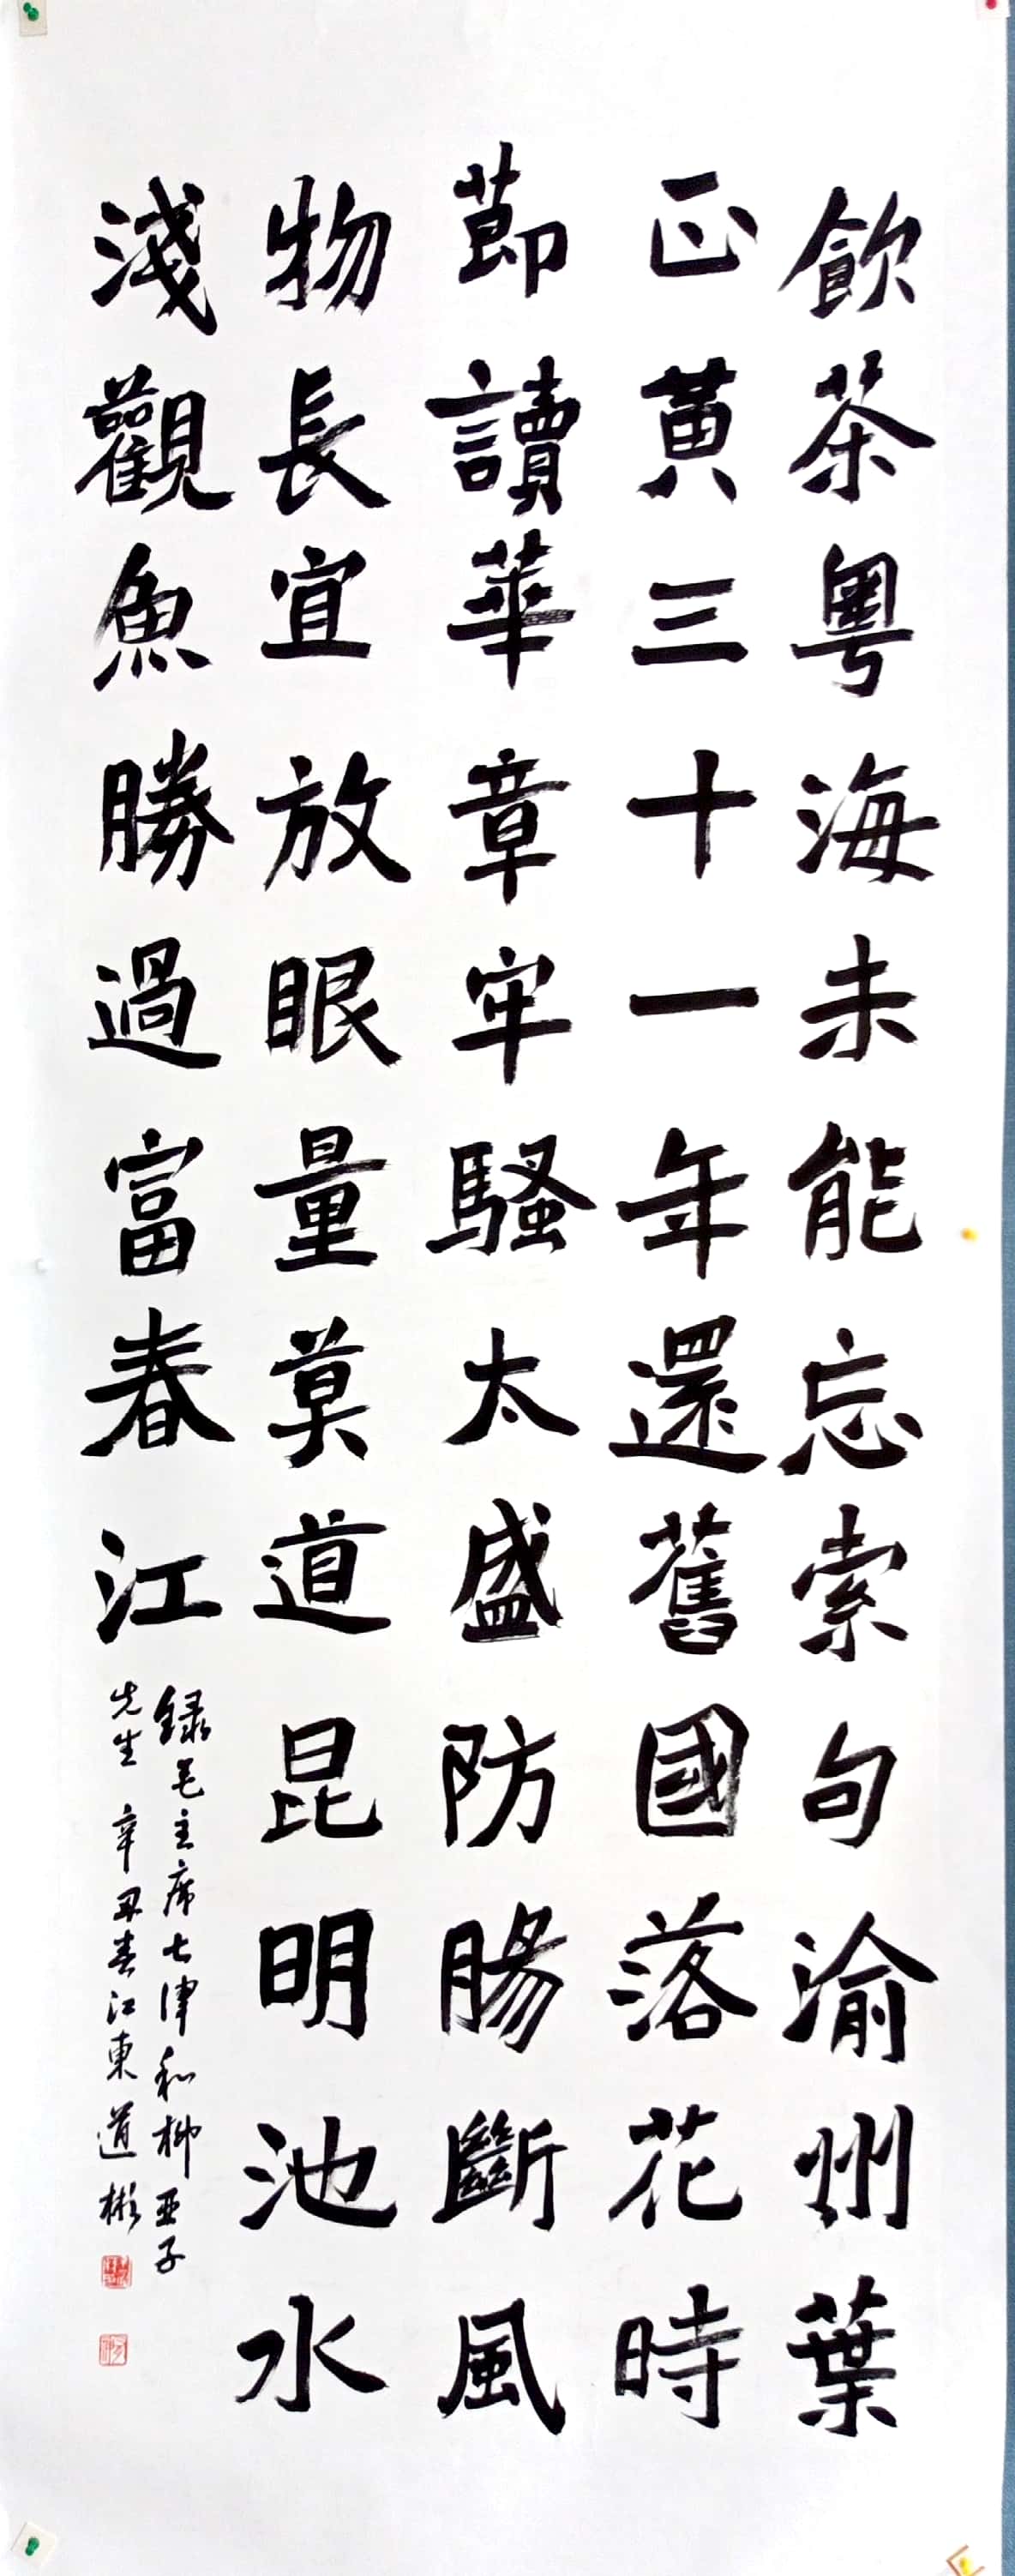 飲茶粵海未能忘索句渝州葉
正黃三十一年還舊國落花時
節讀華章牢騷太盛防腸斷風
物長宜放眼量莫道昆明池水
淺觀魚勝過富春江
錄毛主席七律和柳亞子
先生 辛丑春江東道彬